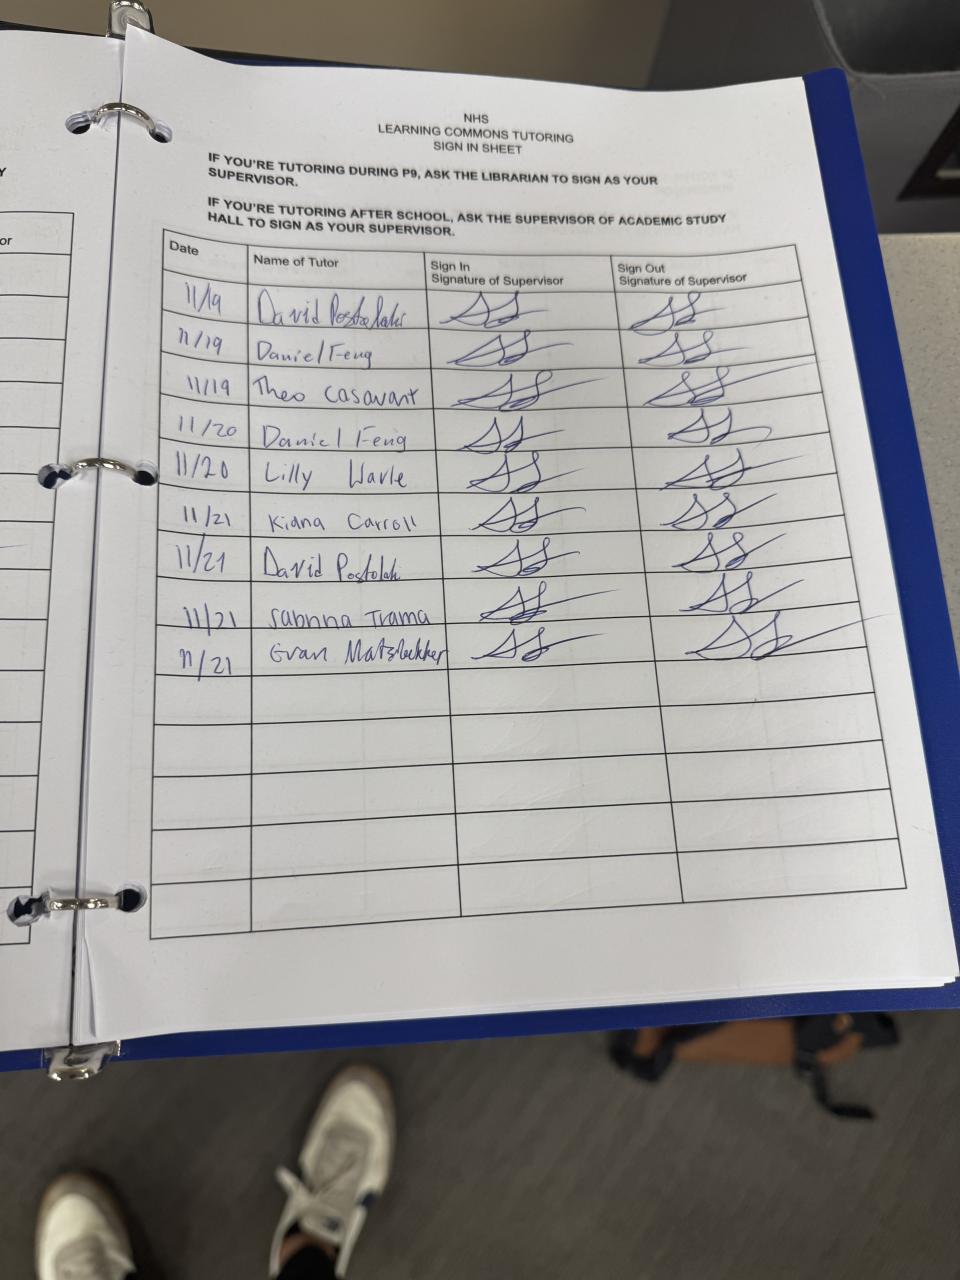 NHS
LEARNING COMMONS TUTORING
SIGN IN SHEET
IF YOU'RE TUTORING DURING P9, ASK THE LIBRARIAN TO SIGN AS YOUR
SUPERVISOR.
IF YOU'RE TUTORING AFTER SCHOOL, ASK THE SUPERVISOR OF ACADEMIC STUDY
HALL TO SIGN AS YOUR SUPERVISOR.
or
Date Name of Tutor Sign In Signature of Supervisor Sign Out Signature of Supervisor
11/19 David
11/19 Daniel Feng
11/19 Theo Casavant
11/20 Daniel Feng
11/20 Lilly
11/21 Kiana Carroll
11/21 David
11/21 Sabrina Trama
11/21 Evan